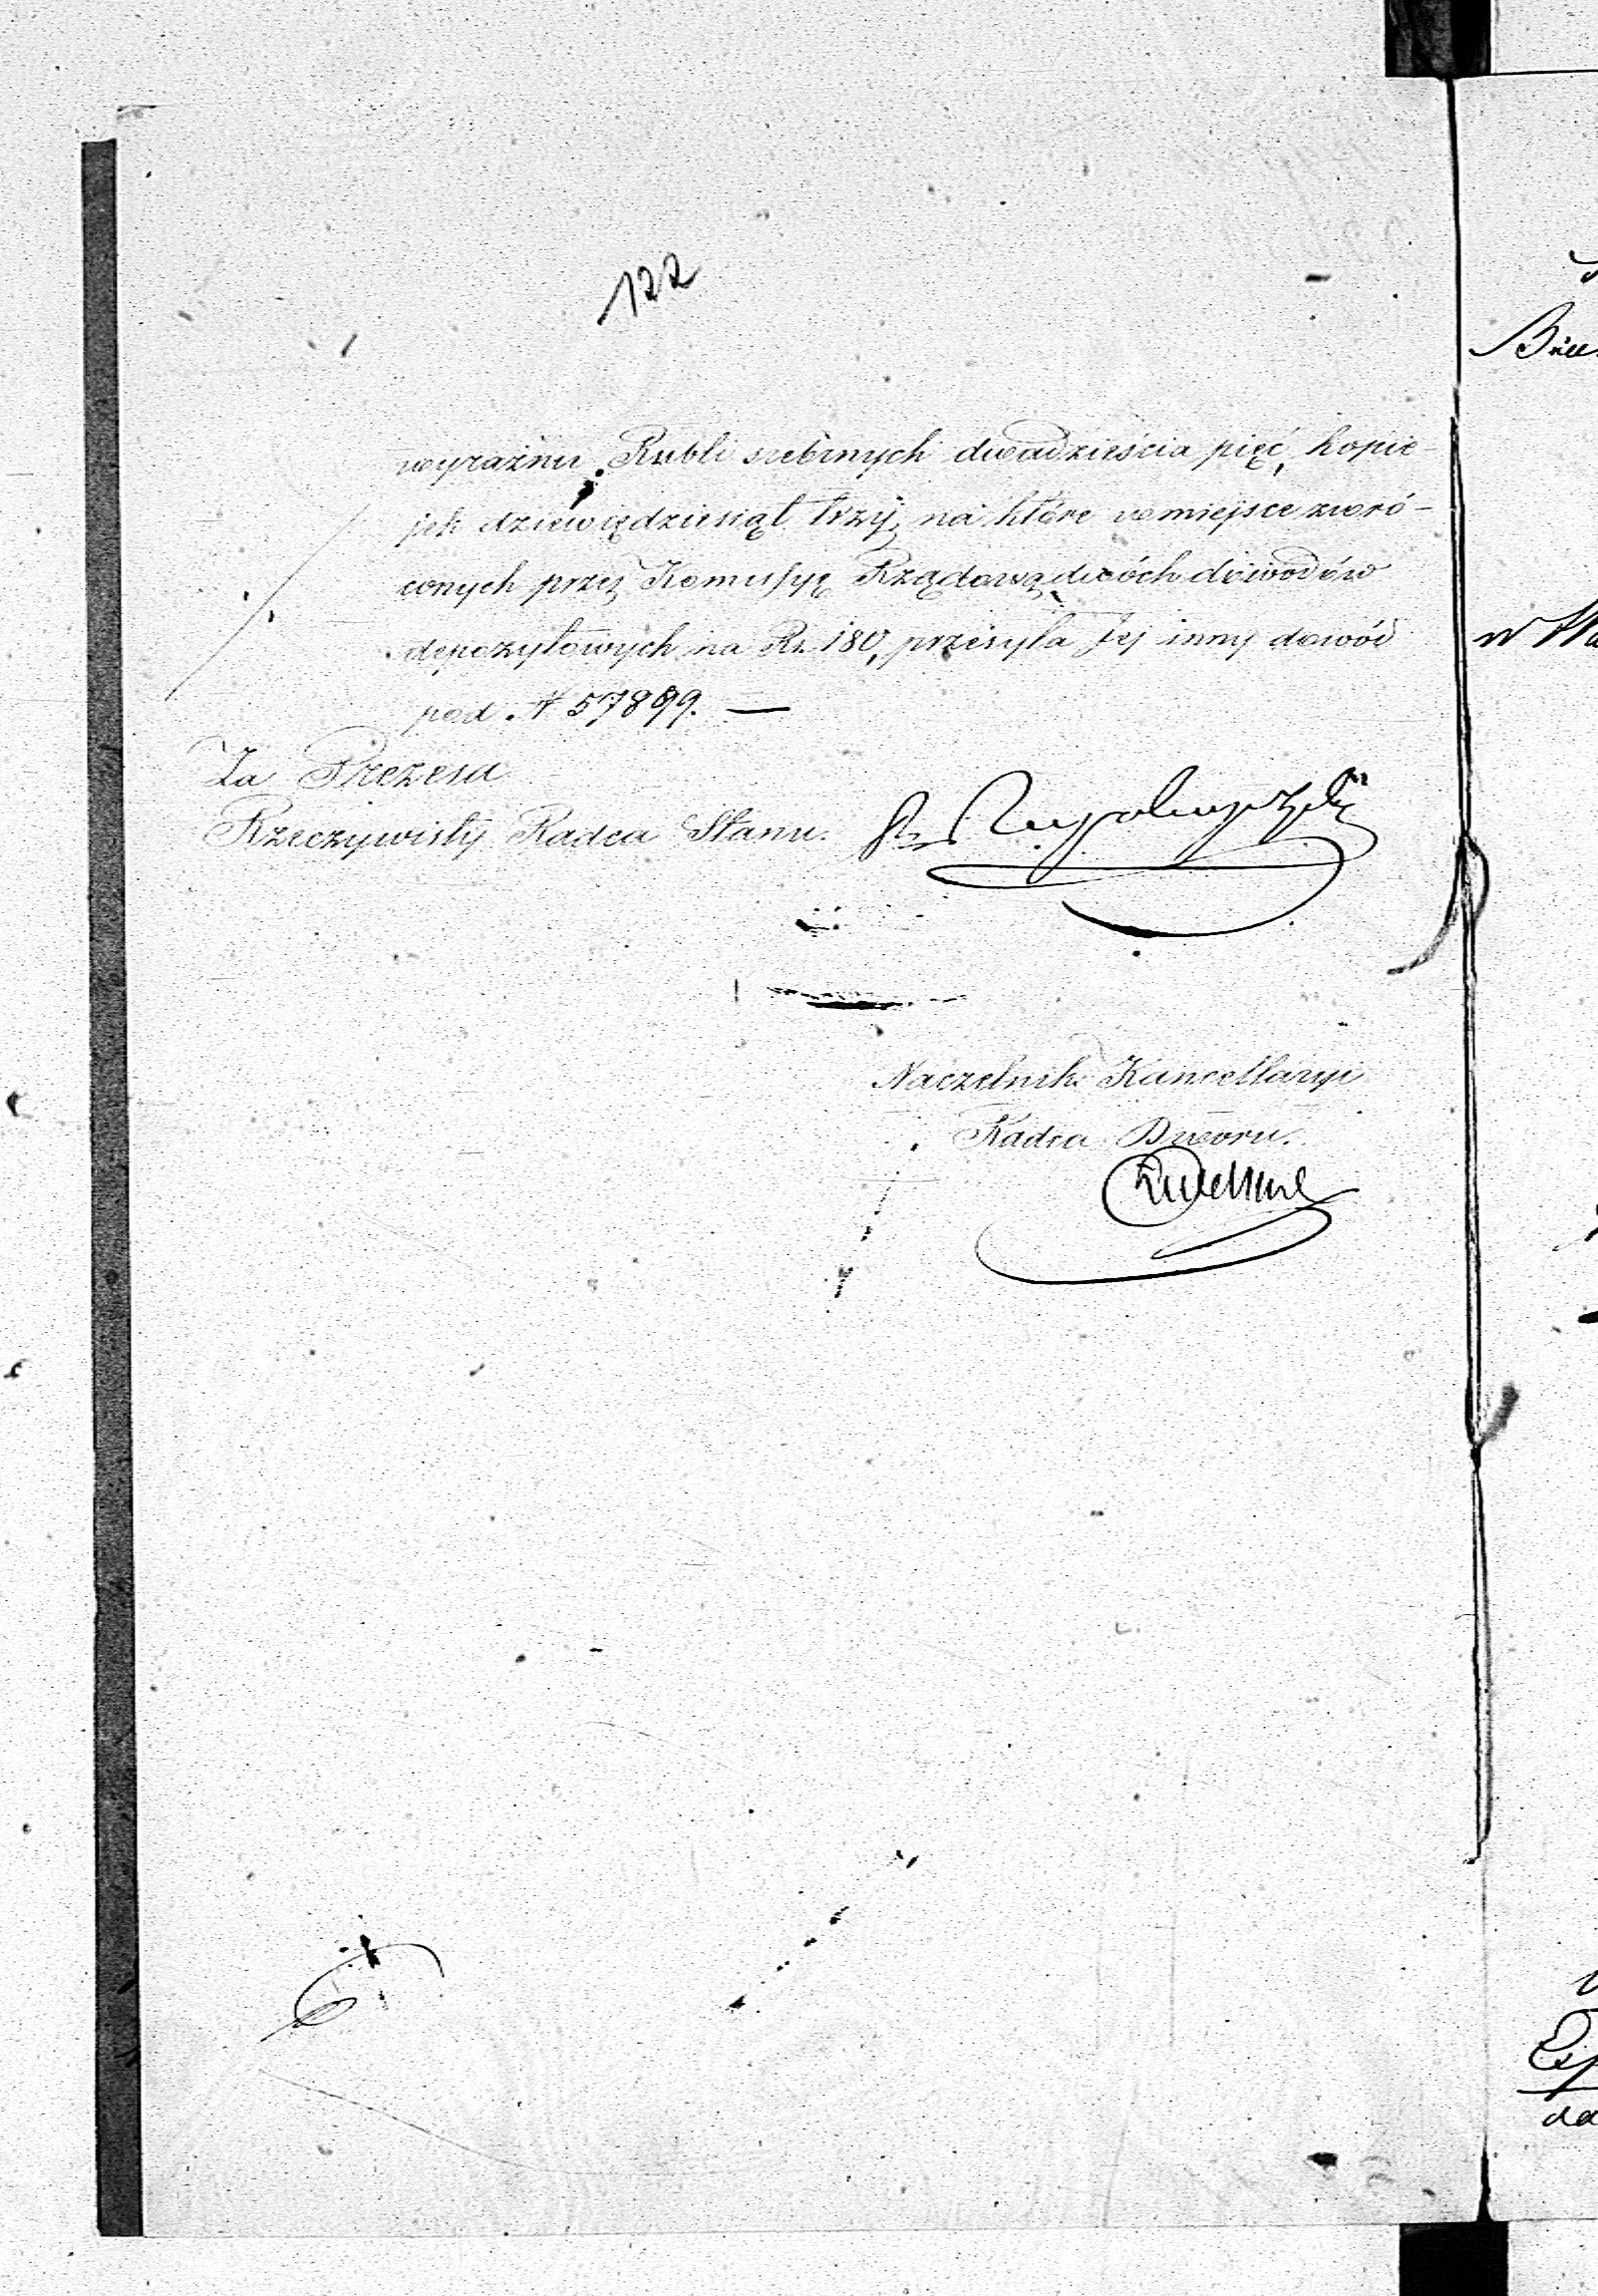 122
wyraźniey Rubli srebrnych dwadzieścia pięć, kopie-
jek dziewiędziesiąt trzy, na które w miejsce zwró-
conych przez Kommissyę Rządową dwóch dowodów
depozytowych na Rs. 180, przesyła Jej inny dowód
pod N 57899. —
Za Prezesa
Rzeczywisty Radca Stanu.
Naczelnik Kancellaryi
Radca Dworu.